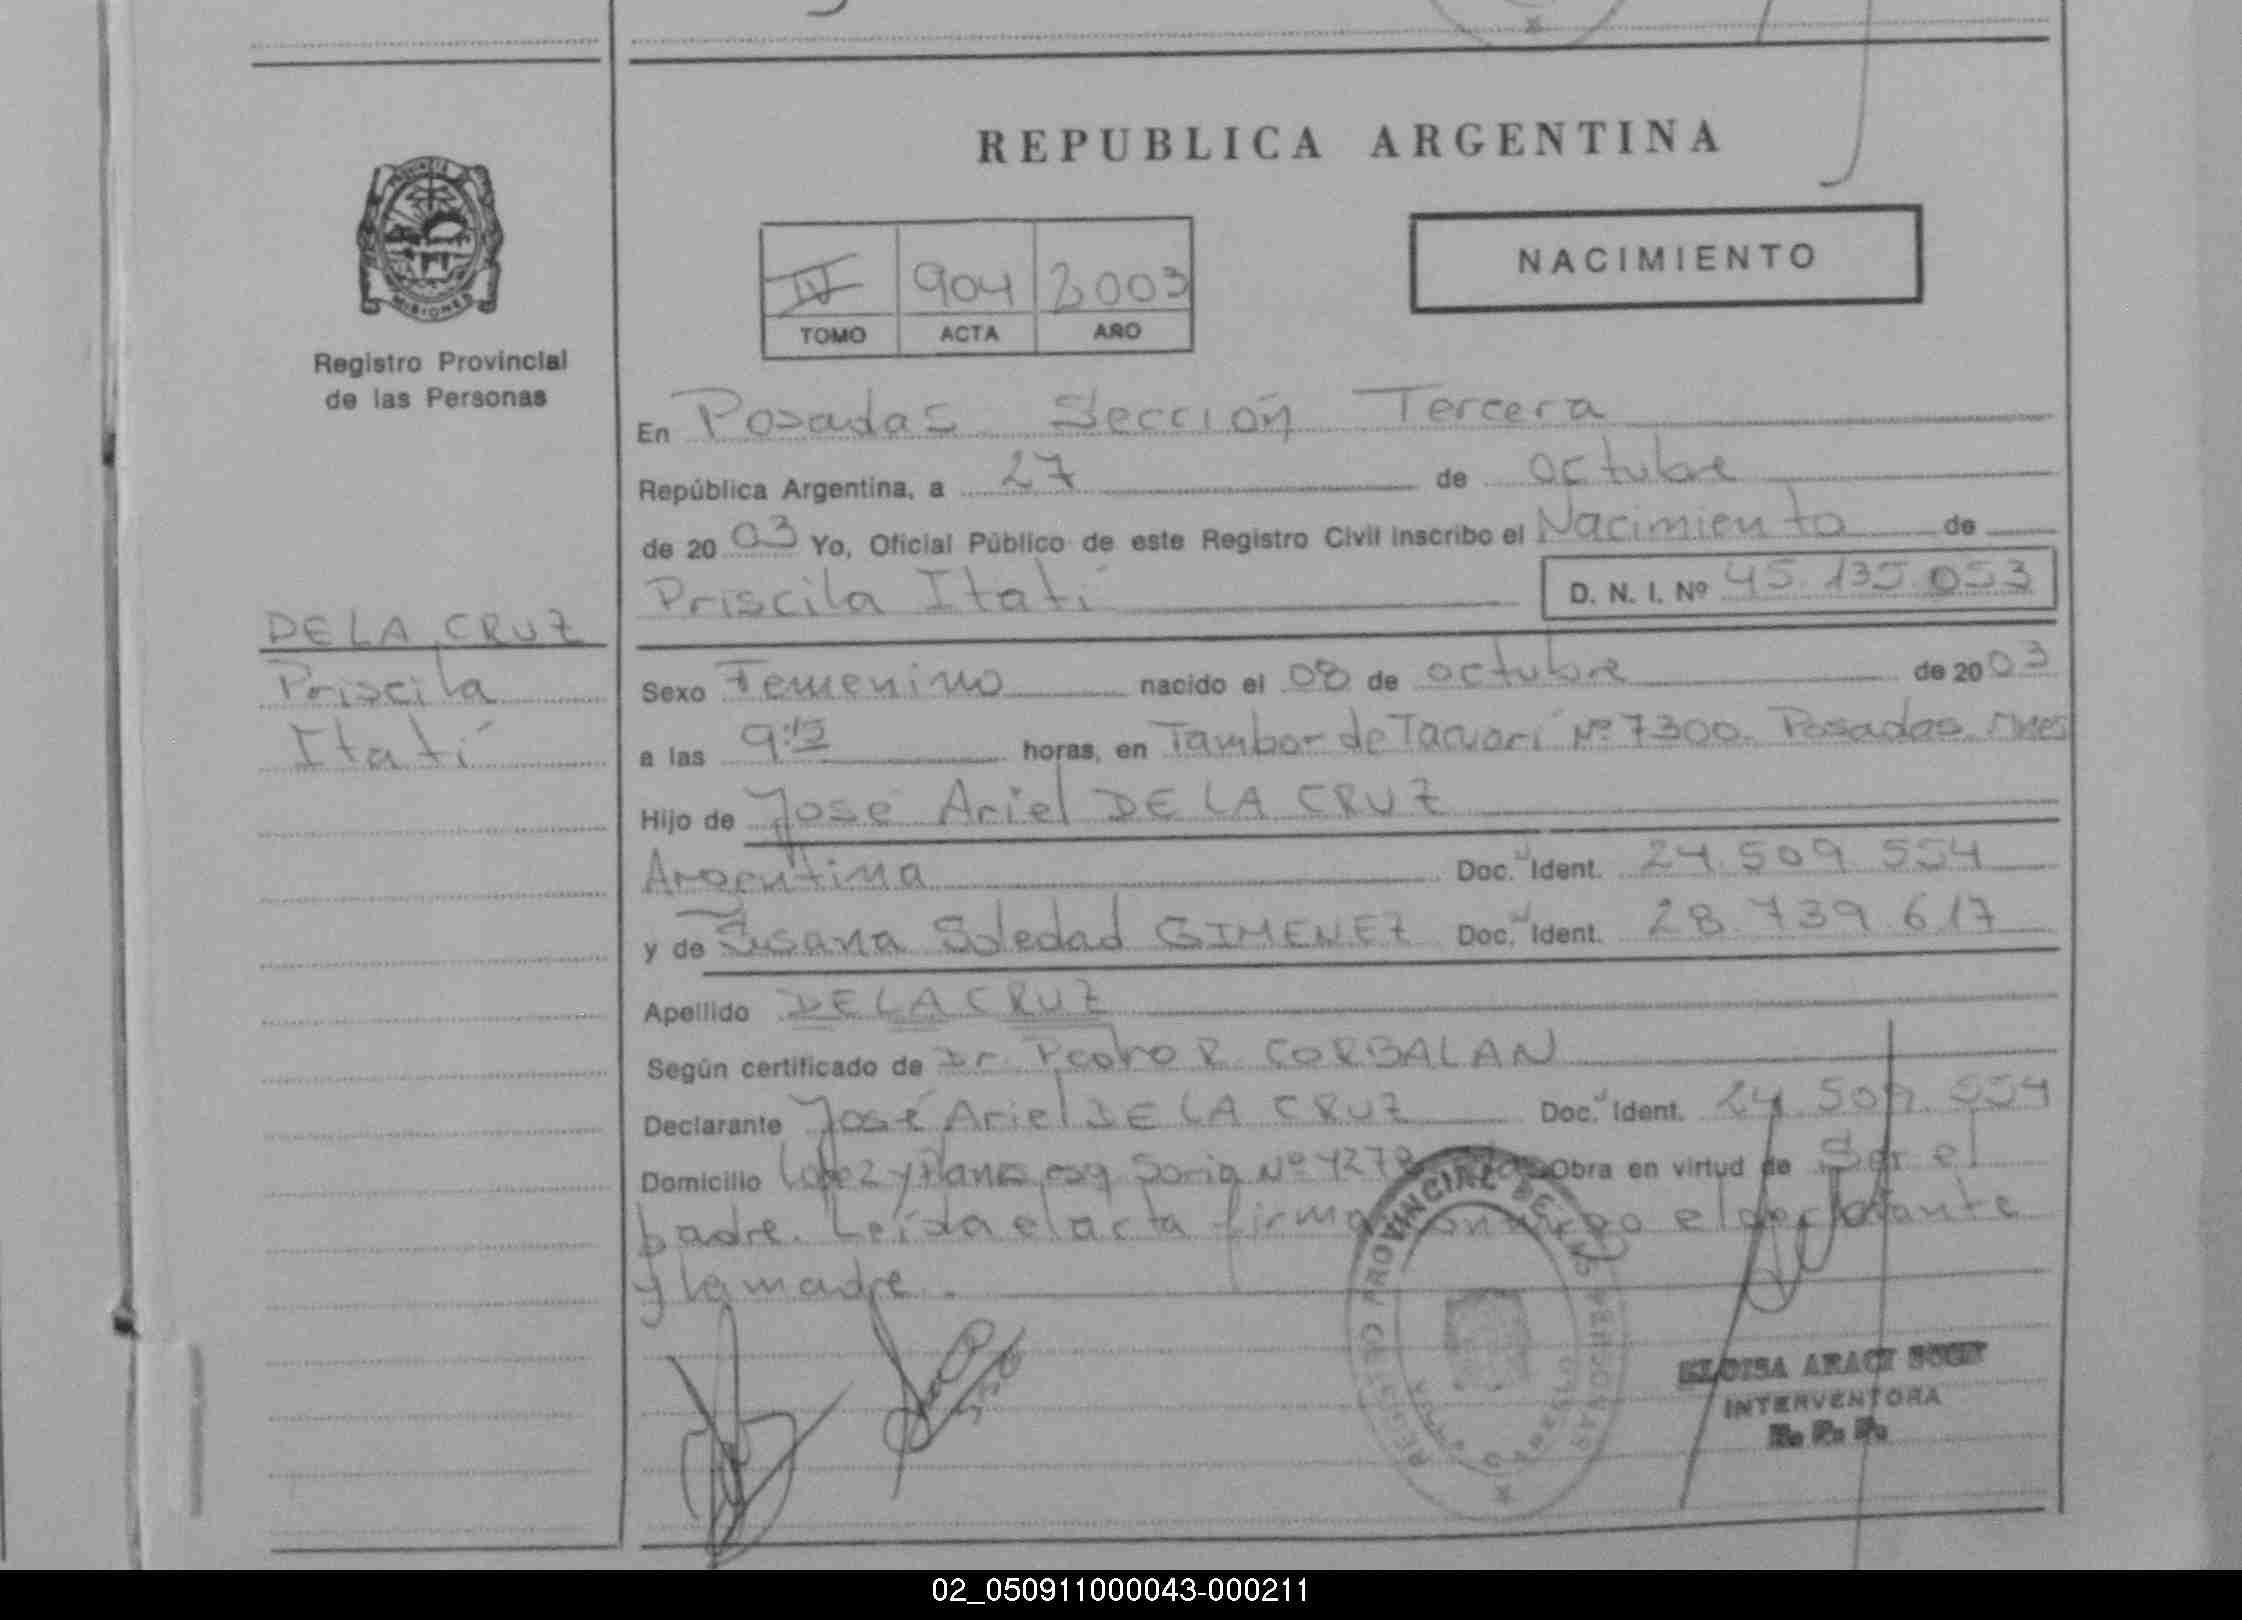 REPUBLICA ARGENTINA
PROVINCIA DE
MISIONES
Registro Provincial
de las Personas
NACIMIENTO
IV 904 2003
TOMO ACTA AÑO
En Posadas Sección Tercera
República Argentina, a 27 de octubre
de 2003 Yo, Oficial Público de este Registro Civil inscribo el Nacimiento de
Priscila Itatí D. N. I. Nº 45.135.053
DE LA CRUZ
Priscila
Itatí
Sexo Femenino nacido el 08 de octubre de 2003
a las 9:15 horas, en Tambor de Tacuarí Nº 7300. Posadas Mnes
Hijo de José Ariel DE LA CRUZ
Argentina Doc. Ident. 24.509.554
y de Susana Soledad GIMENEZ Doc. Ident. 28.739.617
Apellido DE LA CRUZ
Según certificado de Dr. Pedro R. CORBALAN
Declarante José Ariel DE LA CRUZ Doc. Ident. 24.509.554
Domicilio Lopez y Planes esq Soria Nº 4278 Obra en virtud de Ser el
padre. Leída el acta firma conmigo el declarante
y la madre.
REGISTRO PROVINCIAL DE LAS PERSONAS
ELOISA ARACI
INTERVENTORA
R. P. P.
02_050911000043-000211